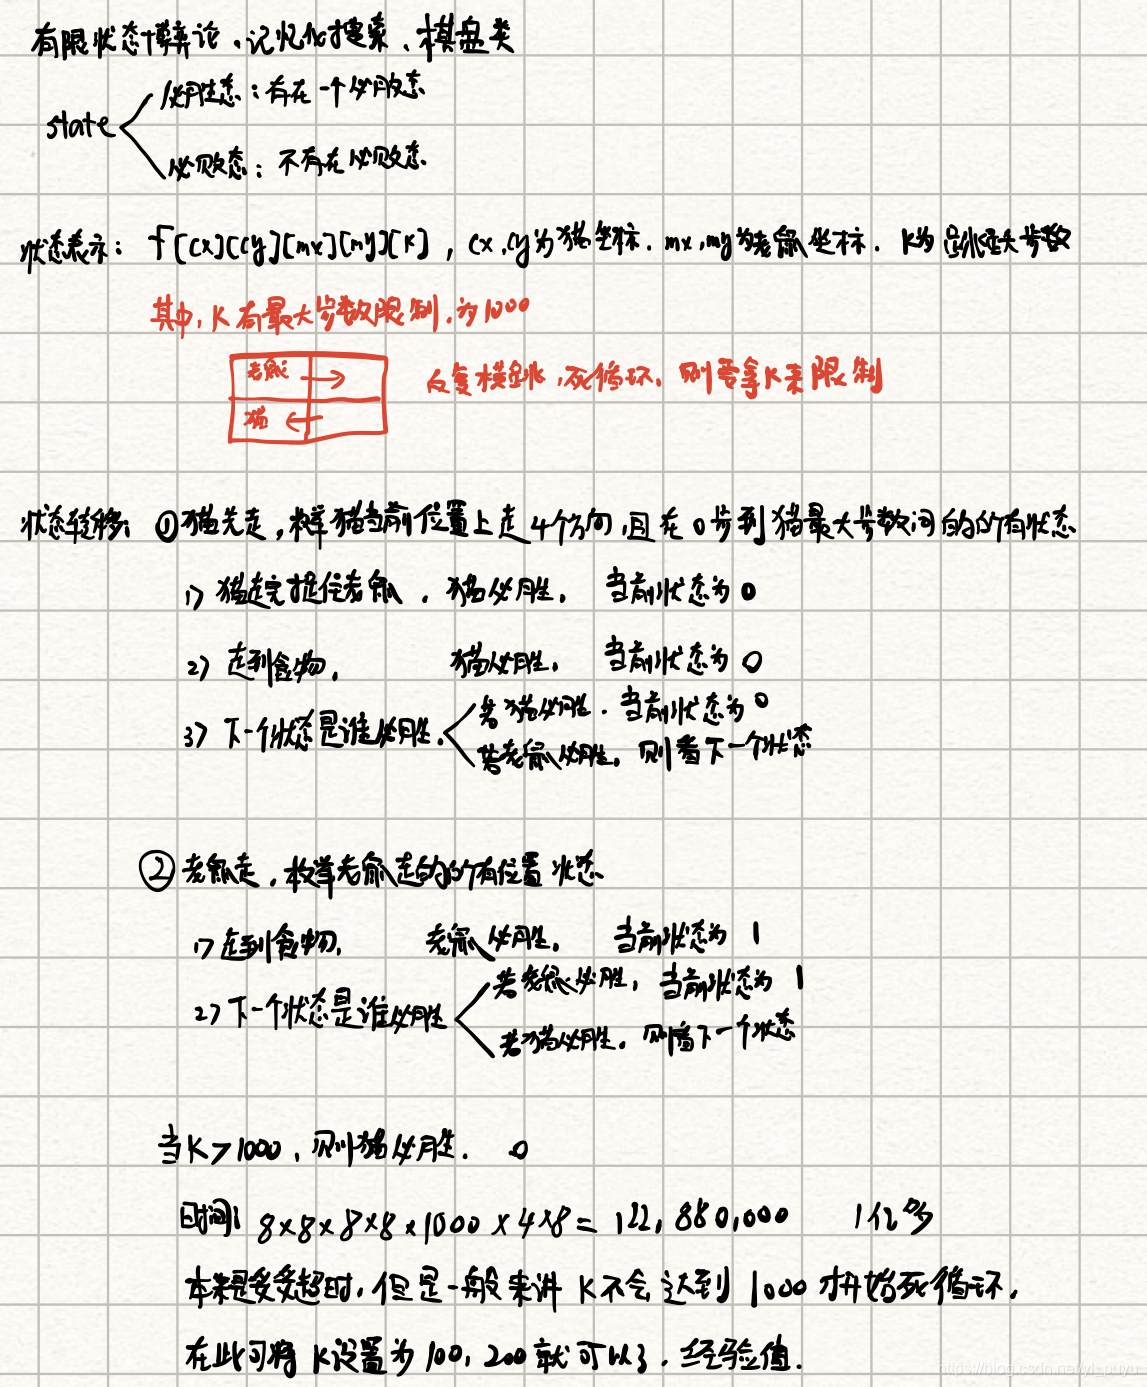 有限状态博弈论、记忆化搜索、棋盘类
state
必胜态：存在一个必败态
必败态：不存在必败态
状态表示： f[cx][cy][mx][my][k]，cx,cy为猫坐标，mx,my为老鼠坐标，K为跳跃最大步数
其中，K有最大步数限制，为1000
老鼠
猫
反复横跳，死循环，则需拿K来限制
状态转移： ①猫先走，枚举猫当前位置上走4个方向，且在0步到猫最大步数间的的所有状态
1）猫走完捉住老鼠，猫必胜。 当前状态为0
2）走到食物， 猫必胜。 当前状态为0
3）下一个状态是谁必胜。
若猫必胜，当前状态为0
若老鼠必胜，则看下一个状态
② 老鼠走，枚举老鼠走的的所有位置状态
1）走到食物， 老鼠必胜， 当前状态为 1
2）下一个状态是谁必胜
若老鼠必胜，当前状态为 1
若猫必胜，则看下一个状态
当K>1000，则猫必胜． 0
时间： 8×8×8×8×1000×4×8= 122,880,000 1亿多
本来是要超时，但是一般来讲 K不会达到1000才开始死循环，
在此可将 K设置为100，200就可以了．经验值．
https://blog.csdn.net/yl_puyu